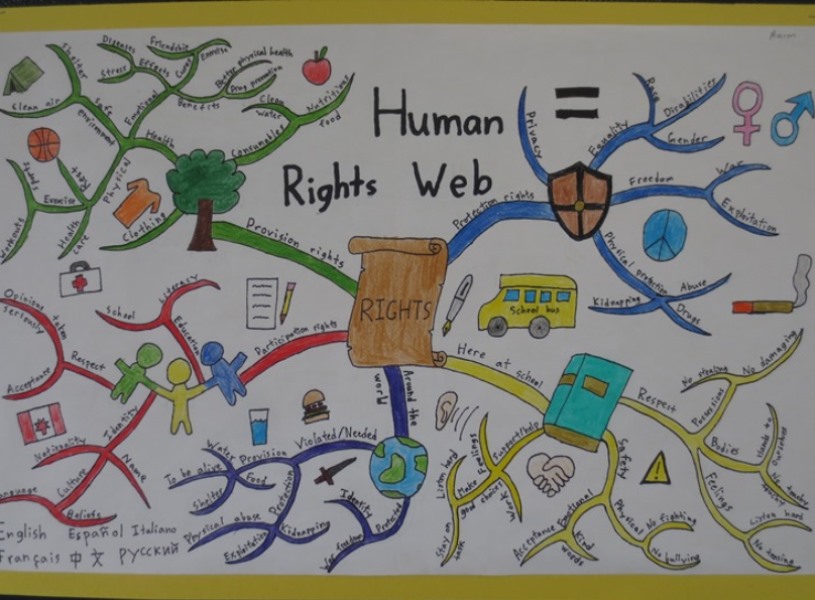 Human
Rights Web
RIGHTS
Provision rights
Health
Emotional
Effects
Stress
Diseases
Cures
Friendship
Exercise
Benefits
Better physical health
Drug prevention
Consumables
Clean water
Nutritious food
Physical
Safe environment
Shelter
Clean air
Rest
Exercise
Sports
Workouts
Health care
Clothing
Protection rights
Privacy
=
Equality
Race
Disabilities
Gender
Freedom
War
Exploitation
Physical protection
Abuse
Drugs
Kidnapping
Participation rights
Education
School
Literacy
Identity
Respect
Opinions taken seriously
Acceptance
Name
Nationality
Culture
Language
Beliefs
English Español Italiano
Français 中文 Русский
Around the world
Violated/Needed
Provision
Water
To be alive
Food
Shelter
Protection
Physical abuse
Kidnapping
Exploitation
Protected
Identity
War freedom
Here at school
School bus
Support/help
Feelings
Make good choices
Listen hard
Work
Stay on task
Safety
Emotional
Acceptance
Kind words
Physical
No fighting
No bullying
Respect
Possessions
No stealing
No damaging
Bodies
Hands to ourselves
Feelings
Listen hard
No teasing